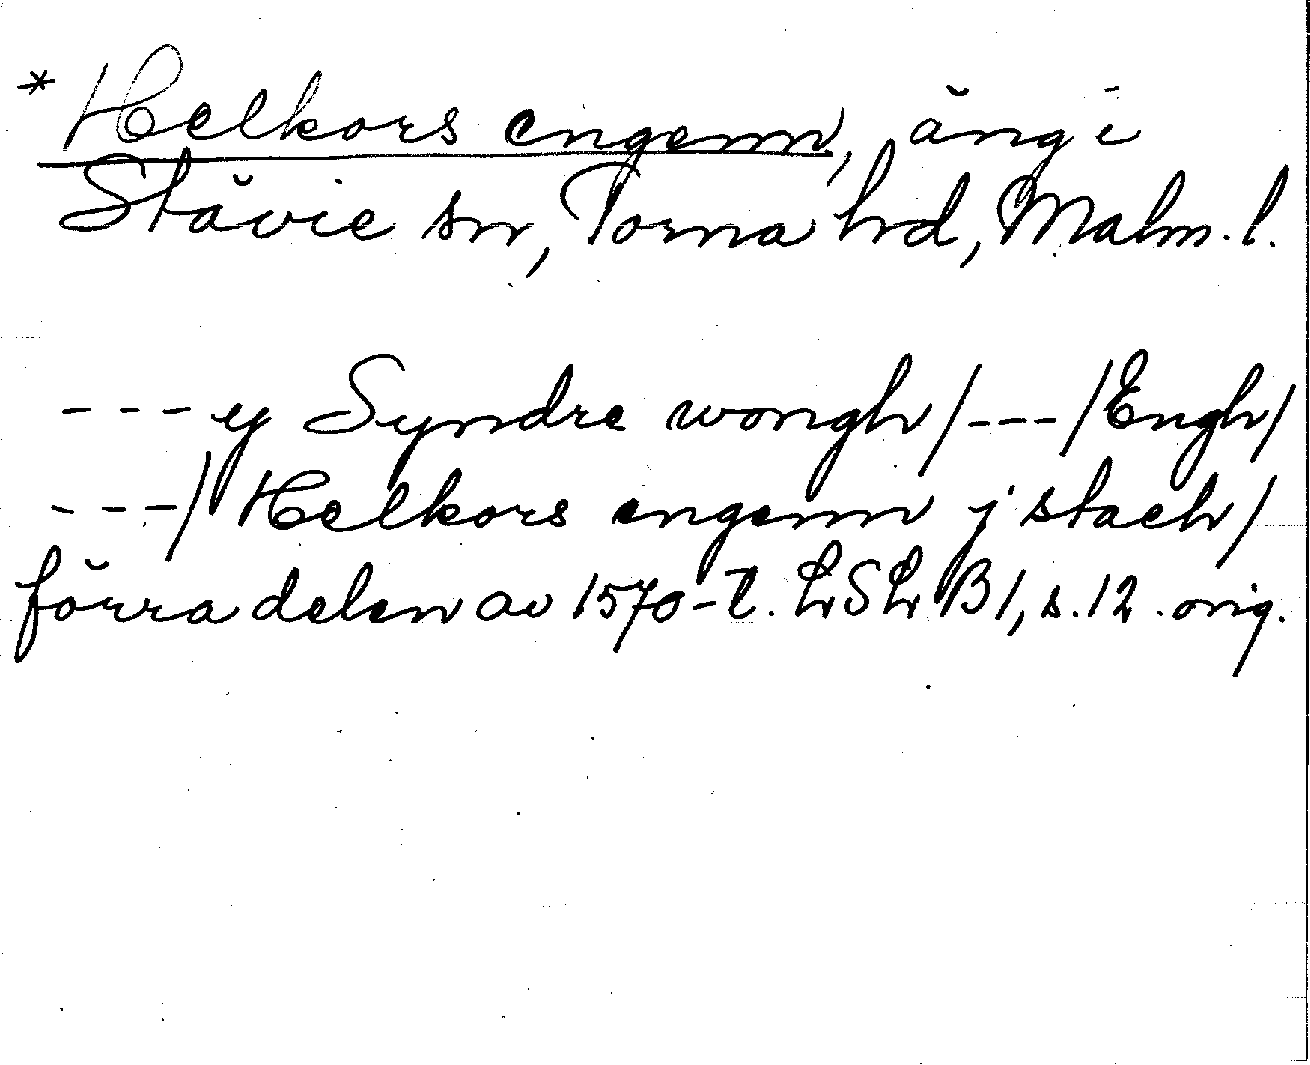 *Helkors engenn, äng i
Stävie sn, Torna hd, Malm. l.
--- y Syndre wongh/---/Engh/
---/Helkors engenn j stach/
förra delen av 1570-t. LSL B1, s. 12. orig.